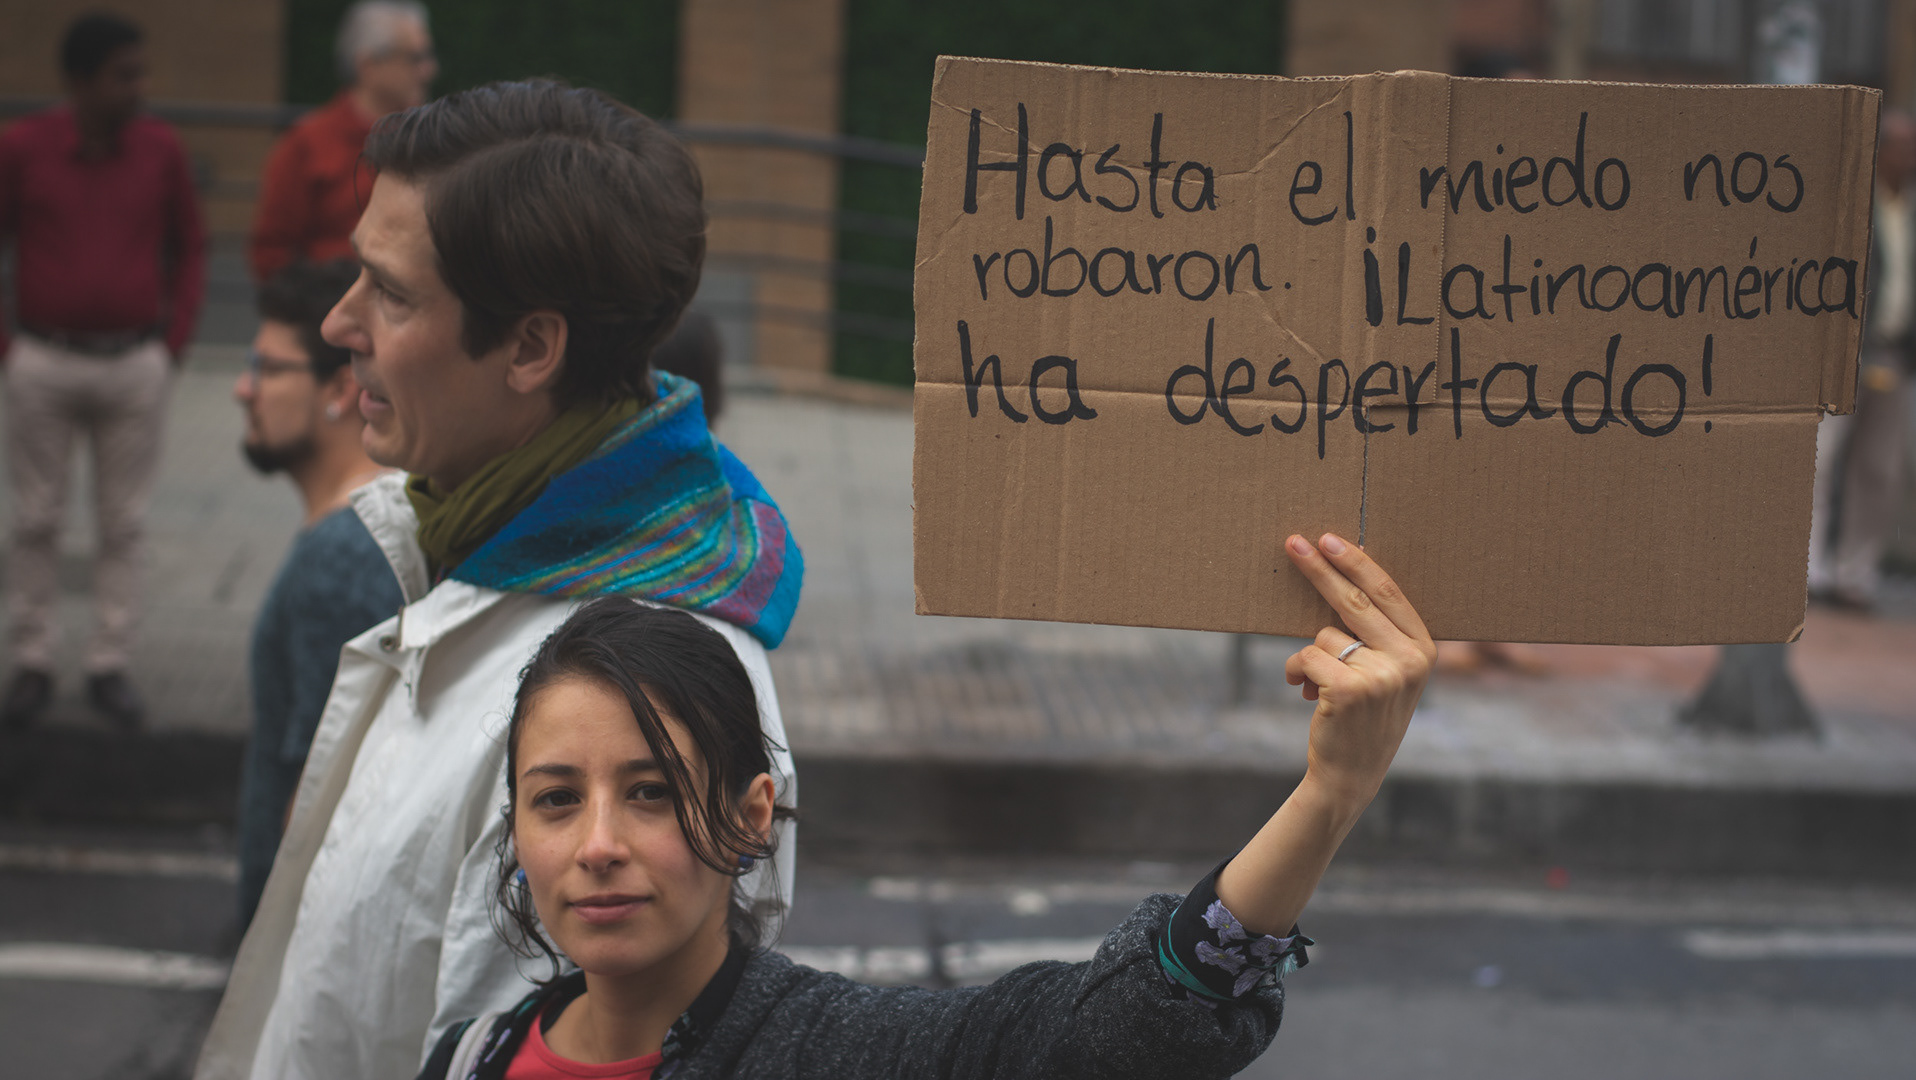 Hasta el miedo nos
robaron. ¡Latinoamérica
ha despertado!